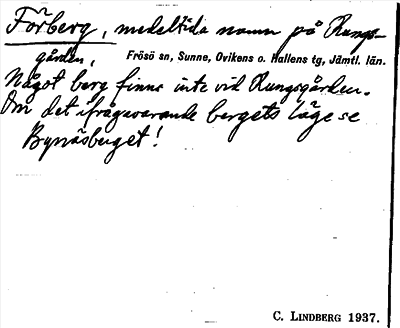 Förberg, medeltida namn på Rungs-
gården, Frösö sn, Sunne, Ovikens o. Hallens tg, Jämtl. län.
Något berg finns inte vid Rungsgården.
Om det ifrågavarande bergets läge se
Bynäsberget!
C. LINDBERG 1937.